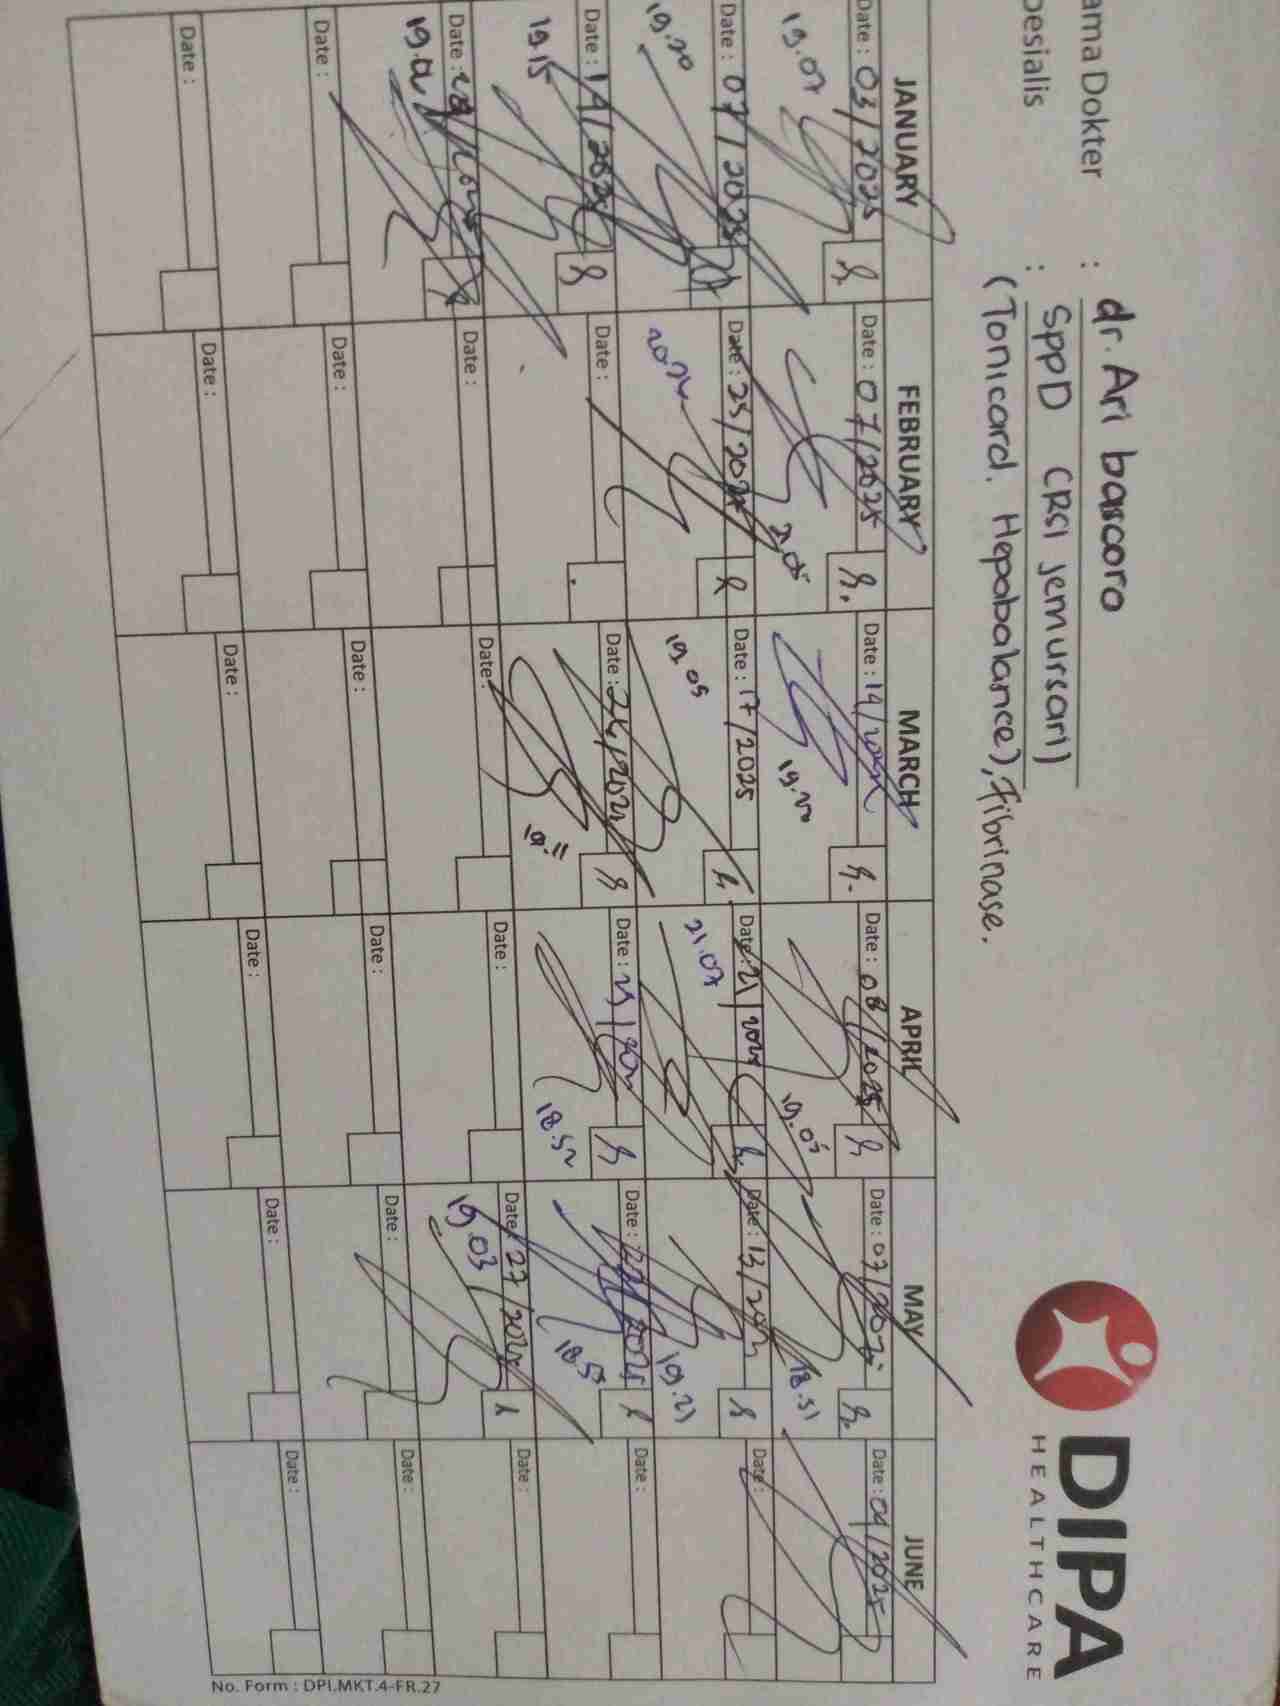 ama Dokter : dr. Ari bascoro
pesialis : SppD (RSI jemursari)
(Tonicard. Hepabalance), Fibrinase.
DIPA
HEALTHCARE
JANUARY FEBRUARY MARCH APRIL MAY JUNE
Date : 03/2025 Date : 07/2025 Date : 14/2025 Date : 08/2025 Date : 07/2025 Date : 04/2025
19.07 19.20 19.05 18.51
Date : 07/2025 Date : 25/2025 Date : 17/2025 Date : 21/2025 Date : 13/2025 Date :
19.20 19.05 21.07 19.21
Date : 14/2025 Date : Date : 24/2025 Date : 25/2025 Date : Date :
19.15 19.11 18.52 18.53
Date : 28/2025 Date : Date : Date : Date : 27/2025 Date :
19.03
Date : Date : Date : Date : Date : Date :
Date : Date : Date : Date : Date : Date :
No. Form : DPI.MKT.4-FR.27